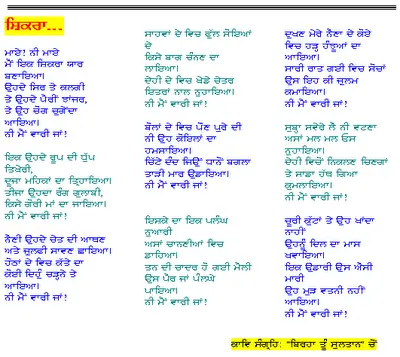 ਸ਼ਿਕਰਾ...
ਮਾਏ! ਨੀ ਮਾਏ
ਮੈਂ ਇਕ ਸ਼ਿਕਰਾ ਯਾਰ
ਬਣਾਇਆ।
ਉਹਦੇ ਸਿਰ ਤੇ ਕਲਗੀ
ਤੇ ਉਹਦੇ ਪੈਰੀਂ ਝਾਂਜਰ,
ਤੇ ਉਹ ਚੋਗ ਚੁਗੇਂਦਾ
ਆਇਆ।
ਨੀ ਮੈਂ ਵਾਰੀ ਜਾਂ!
ਇਕ ਉਹਦੇ ਰੂਪ ਦੀ ਧੁੱਪ
ਤਿਖੇਰੀ,
ਦੂਜਾ ਮਹਿਕਾਂ ਦਾ ਤ੍ਰਿਹਾਇਆ।
ਤੀਜਾ ਉਹਦਾ ਰੰਗ ਗੁਲਾਬੀ,
ਕਿਸੇ ਗੋਰੀ ਮਾਂ ਦਾ ਜਾਇਆ।
ਨੀ ਮੈਂ ਵਾਰੀ ਜਾਂ!
ਨੈਣੀਂ ਉਹਦੇ ਚੇਤ ਦੀ ਆਥਣ
ਅਤੇ ਜ਼ੁਲਫੀ ਸਾਵਣ ਛਾਇਆ।
ਹੋਠਾਂ ਦੇ ਵਿਚ ਕੱਤੇ ਦਾ
ਕੋਈ ਦਿਹੁੰ ਚੜ੍ਹਨੇ ਤੇ
ਆਇਆ।
ਨੀ ਮੈਂ ਵਾਰੀ ਜਾਂ!
ਸਾਹਵਾਂ ਦੇ ਵਿਚ ਫੁੱਲ ਸੋਇਆਂ
ਦੇ
ਕਿਸੇ ਬਾਗ ਚੰਨਣ ਦਾ
ਲਾਇਆ।
ਦੇਹੀ ਦੇ ਵਿਚ ਖੇਡੇ ਚੇਤਰ
ਇਤਰਾਂ ਨਾਲ ਨੁਹਾਇਆ।
ਨੀ ਮੈਂ ਵਾਰੀ ਜਾਂ!
ਬੋਲਾਂ ਦੇ ਵਿਚ ਪੌਣ ਪੁਰੇ ਦੀ
ਨੀ ਉਹ ਕੋਇਲਾਂ ਦਾ
ਹਮਸਾਇਆ।
ਚਿੱਟੇ ਦੰਦ ਜਿਉਂ ਧਾਨੋਂ ਬਗਲਾ
ਤਾੜੀ ਮਾਰ ਉਡਾਇਆ।
ਨੀ ਮੈਂ ਵਾਰੀ ਜਾਂ!
ਇਸ਼ਕੇ ਦਾ ਇਕ ਪਲੰਘ
ਨੁਆਰੀ
ਅਸਾਂ ਚਾਨਣੀਆਂ ਵਿਚ
ਡਾਹਿਆ।
ਤਨ ਦੀ ਚਾਦਰ ਹੋ ਗਈ ਮੈਲੀ
ਉਸ ਪੈਰ ਜਾਂ ਪਲੰਘੇ
ਪਾਇਆ।
ਨੀ ਮੈਂ ਵਾਰੀ ਜਾਂ!
ਦੁਖਣ ਮੇਰੇ ਨੈਣਾਂ ਦੇ ਕੋਏ
ਵਿਚ ਹੜ੍ਹ ਹੰਝੂਆਂ ਦਾ
ਆਇਆ।
ਸਾਰੀ ਰਾਤ ਗਈ ਵਿਚ ਸੋਚਾਂ
ਉਸ ਇਹ ਕੀ ਜ਼ੁਲਮ
ਕਮਾਇਆ।
ਨੀ ਮੈਂ ਵਾਰੀ ਜਾਂ!
ਸੁਬ੍ਹਾ ਸਵੇਰੇ ਲੈ ਨੀ ਵਟਣਾ
ਅਸਾਂ ਮਲ ਮਲ ਓਸ
ਨੁਹਾਇਆ।
ਦੇਹੀ ਵਿਚੋਂ ਨਿਕਲਣ ਚਿਣਗਾਂ
ਤੇ ਸਾਡਾ ਹੱਥ ਗਿਆ
ਕੁਮਲਾਇਆ।
ਨੀ ਮੈਂ ਵਾਰੀ ਜਾਂ!
ਚੂਰੀ ਕੁੱਟਾਂ ਤੇ ਉਹ ਖਾਂਦਾ
ਨਾਹੀਂ
ਉਹਨੂੰ ਦਿਲ ਦਾ ਮਾਸ
ਖਵਾਇਆ।
ਇਕ ਉਡਾਰੀ ਉਸ ਐਸੀ
ਮਾਰੀ
ਉਹ ਮੁੜ ਵਤਨੀ ਨਹੀਂ
ਆਇਆ।
ਨੀ ਮੈਂ ਵਾਰੀ ਜਾਂ!
ਕਾਵਿ ਸੰਗ੍ਰਹਿ: "ਬਿਰਹਾ ਤੂੰ ਸੁਲਤਾਨ" ਚੋਂ